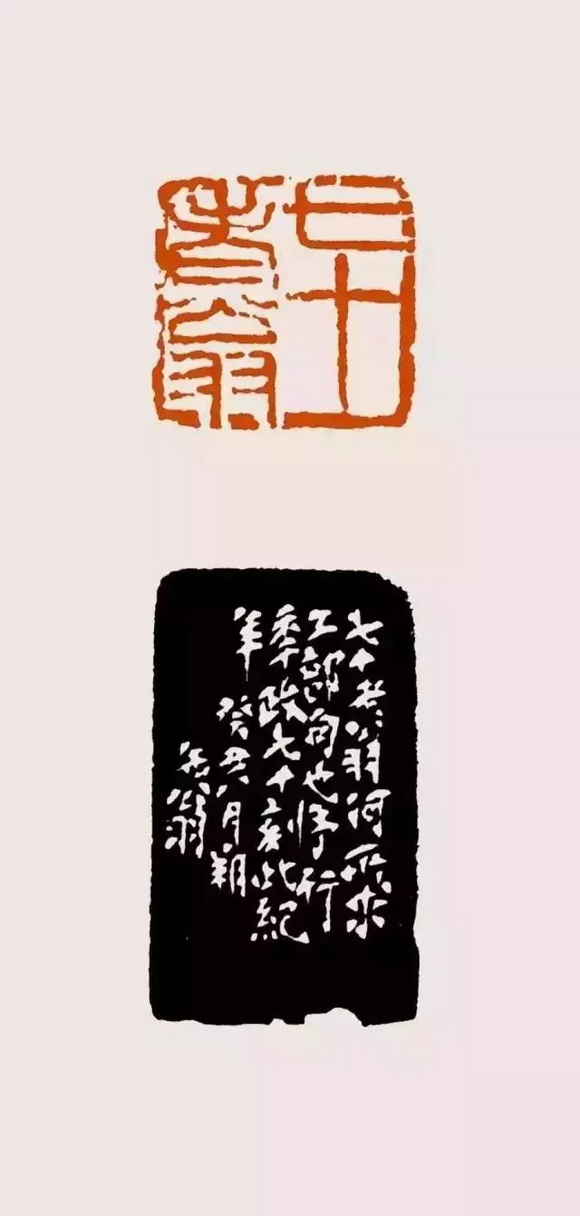 七十
老翁
七十老翁何所求
工部句也行
秊政七十刻此紀
年
癸丑八月朔
缶翁